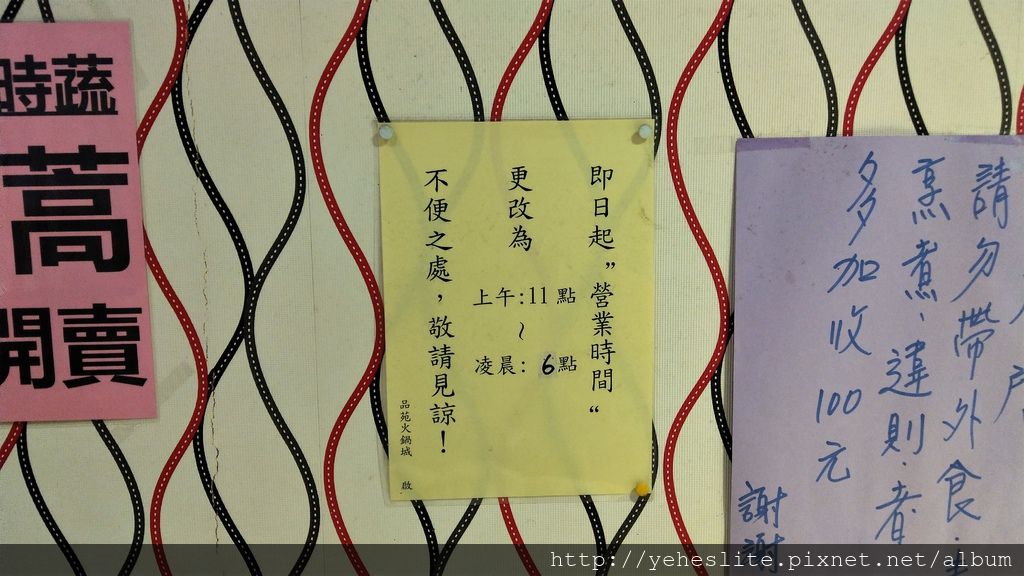 時蔬
蒿
開賣
即日起”營業時間“
更改為
上午:11 點
~
凌晨: 6點
不便之處，敬請見諒！
品苑火鍋城 啟
請勿帶外食.
烹煮、違則.者
多加收 100 元
謝謝
http://yeheslite.pixnet.net/album